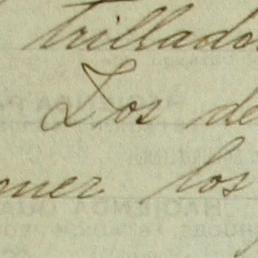 trillado
Los de
oner los